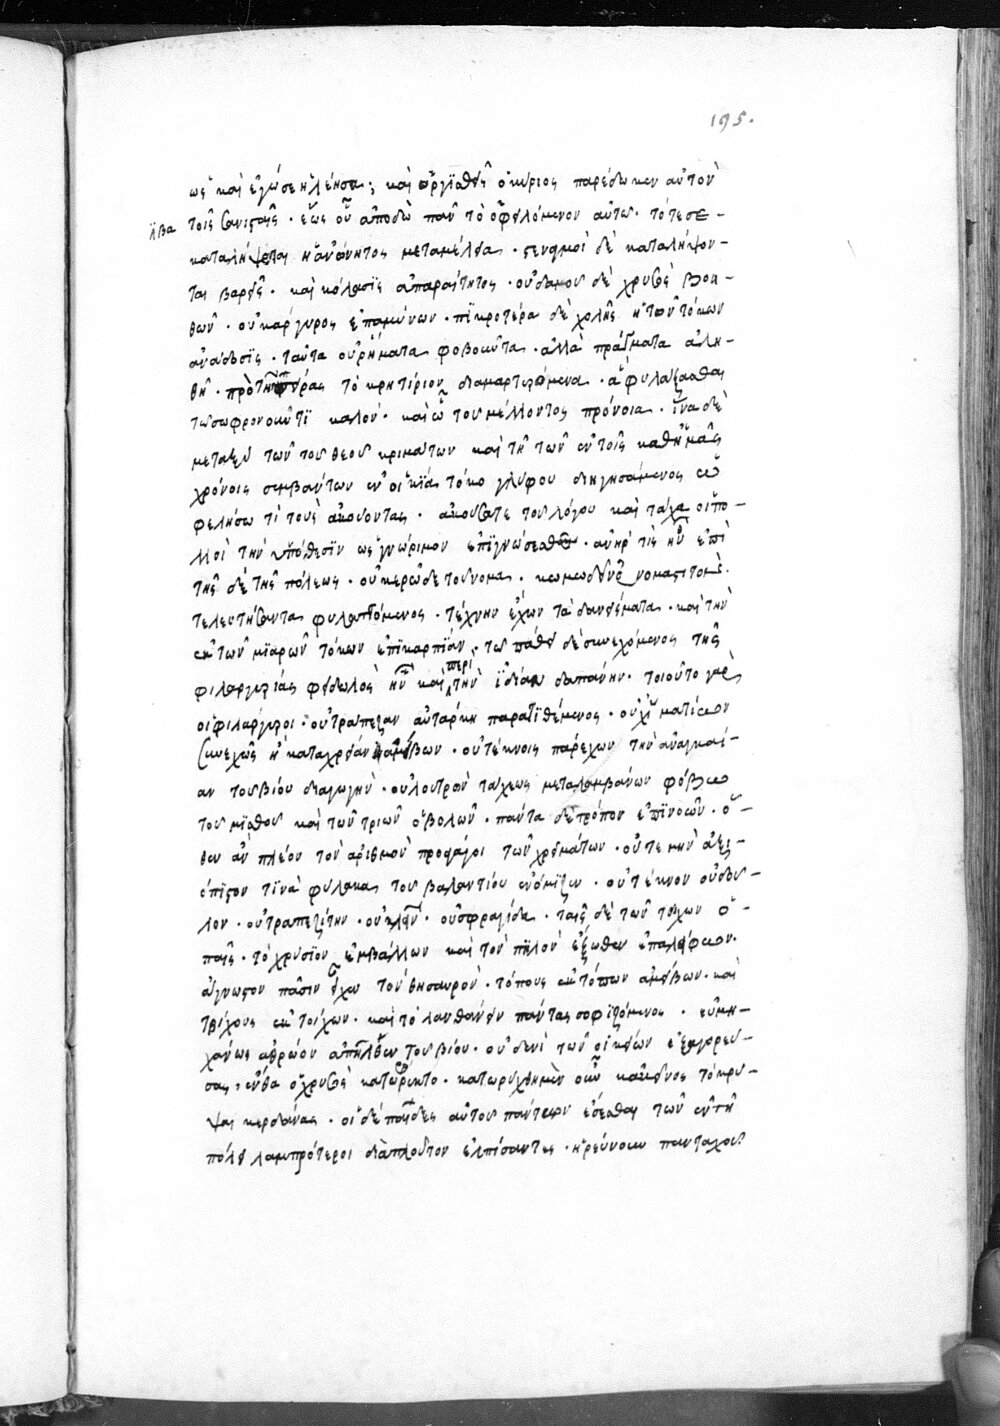 195.
ὡς καὶ ἐγώ σε ἠλέησα; καὶ ὀργισθεὶς ὁ κύριος παρέδωκεν αὐτὸν
τοῖς βασανισταῖς · ἕως οὗ ἀποδῷ πᾶν τὸ ὀφειλόμενον αὐτῷ · τότε σε –
καταλήψεται ἡ ἀνόνητος μεταμέλεια · στεναγμοὶ δὲ καταλήψον –
ται βαρεῖς · καὶ κόλασις ἀπαραίτητος · οὐδαμοῦ δὲ χρυσὸς βοη –
θῶν · οὐκ ἄργυρος ἐπαμύνων · πικροτέρα δὲ χολῆς ἡ τῶν τόκων
ἀνάδοσις · ταῦτα οὐ ῥήματα φοβοῦντα · ἀλλὰ πράγματα ἀλη –
θῆ · πρὸ τῆς πείρας τὸ κριτήριον διαμαρτυρόμενα · ἃ φυλάξασθαι
τῷ σωφρονοῦντι καλόν · καὶ ᾧ τοῦ μέλλοντος πρόνοια · ἵνα δὲ
μεταξὺ τῶν τοῦ θεοῦ κριμάτων καὶ τι τῶν ἐν τοῖς καθ' ἡμᾶς
χρόνοις συμβάντων ἐν οἰκίᾳ τοκογλύφου διηγησάμενος ὠ
φελήσω τι τοὺς ἀκούοντας · ἀκούσατε τοῦ λόγου καὶ τάχα οἱ πο –
λλοὶ τὴν ὑπόθεσιν ὡς γνώριμον ἐπιγνώσεσθε · ἀνήρ τις ἦν ἐπὶ
τῆς δὲ τῆς πόλεως · οὐκ ἐρῶ δὲ τοὔνομα · κωμῳδεῖν ὀνομαστὶ τὸν
τελευτήσαντα φυλαττόμενος · τέχνην ἔχων τὰ δανείσματα · καὶ τὴν
ἐκ τῶν μιαρῶν τόκων ἐπικαρπίαν · τῷ πάθει δὲ συνεχόμενος τῆς
φιλαργυρίας φειδωλὸς ἦν καὶ περὶ τὴν ἰδίαν δαπάνην · τοιοῦτοι γὰρ
οἱ φιλάργυροι · οὐ τράπεζαν αὐτάρκη παρατιθέμενος · οὐχ ἱμάτιον
συνεχῶς ἢ κατὰ χρείαν ἀμείβων · οὐ τέκνοις παρέχων τὴν ἀναγκαί –
αν τοῦ βίου διαγωγήν · οὐ λουτροῦ ταχέως μεταλαμβάνων φόβῳ
τοῦ μισθοῦ καὶ τῶν τριῶν ὀβολῶν · πάντα δὲ τρόπον ἐπινοῶν · ὅ –
θεν ἂν πλέον τὸν ἀριθμὸν προαγάγοι τῶν χρημάτων · οὔτε μὴν ἀξι –
όπιστόν τινα φύλακα τοῦ βαλαντίου ἐνόμιζεν · οὐ τέκνον οὐ δοῦ –
λον · οὐ τραπεζίτην · οὐ κλεῖν · οὐ σφραγῖδα · ταῖς δὲ τῶν τοίχων ὀ –
παῖς · τὸ χρυσίον ἐμβάλλων καὶ τὸν πηλὸν ἔξωθεν ἐπαλείφων ·
ἄγνωστον πᾶσιν εἶχε τὸν θησαυρόν · τόπους ἐκ τόπων ἀμείβων · καὶ
τοίχους ἐκ τοίχων · καὶ τὸ λανθάνειν πάντας σοφιζόμενος · εὐμη –
χάνως ἀθρόον ἀπῆλθεν τοῦ βίου · οὐδενὶ τῶν οἰκείων ἐξαγορεύ –
σας, ἔνθα ὁ χρυσὸς κατώρυκτο · κατωρύχθη μὲν οὖν κἀκεῖνος τὸ κρύ –
ψαι κερδάνας · οἱ δὲ παῖδες αὐτοῦ πάντων ἔσεσθαι τῶν ἐν τῇ
πόλει λαμπρότεροι διὰ πλοῦτον ἐλπίσαντες · ἠρεύνων πανταχοῦ